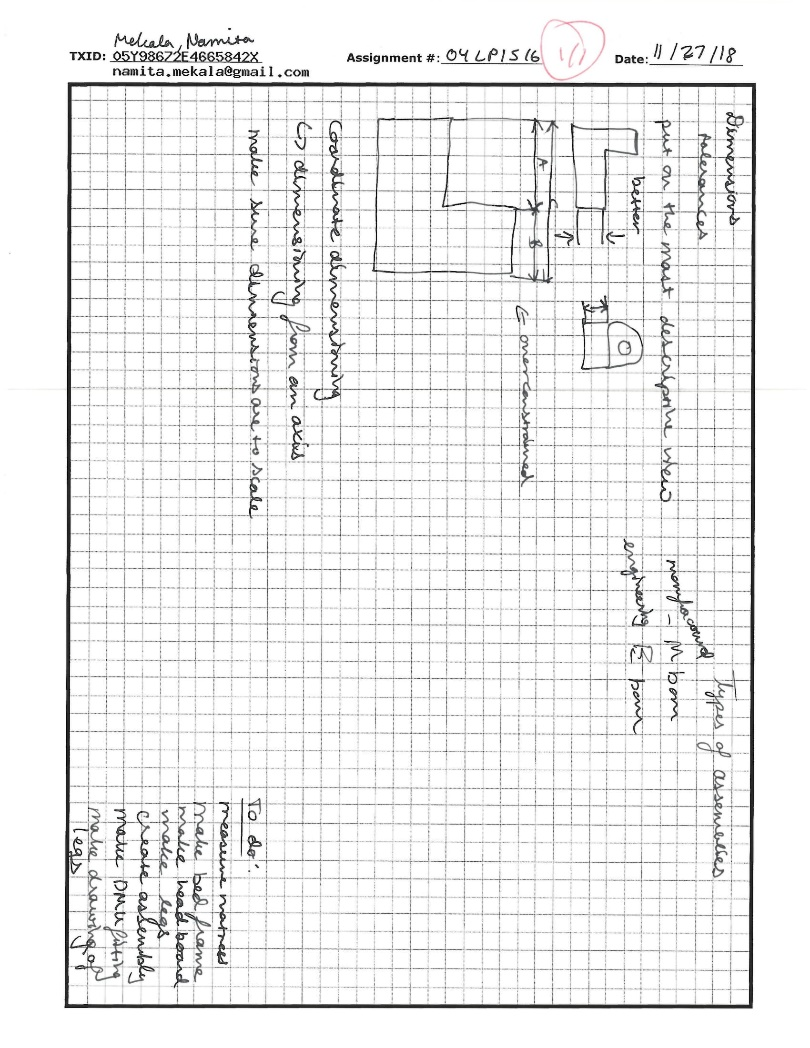 Mekala, Namita
TXID: 05Y98672E4665842X
namita.mekala@gmail.com
Assignment #: 04LP1516
1/1
Date: 11/27/18
Dimensions
tolerances
put on the most descriptive view
better
A
C
B
← overconstrained
Coordinate dimensioning
↳ dimensioning from an axis
make sure dimensions are to scale
Types of assemblies
- M bom
engineering E bom
To do:
measure matress
make bed frame
make head board
make legs
create assembly
make DMU fitting
make drawing of
legs